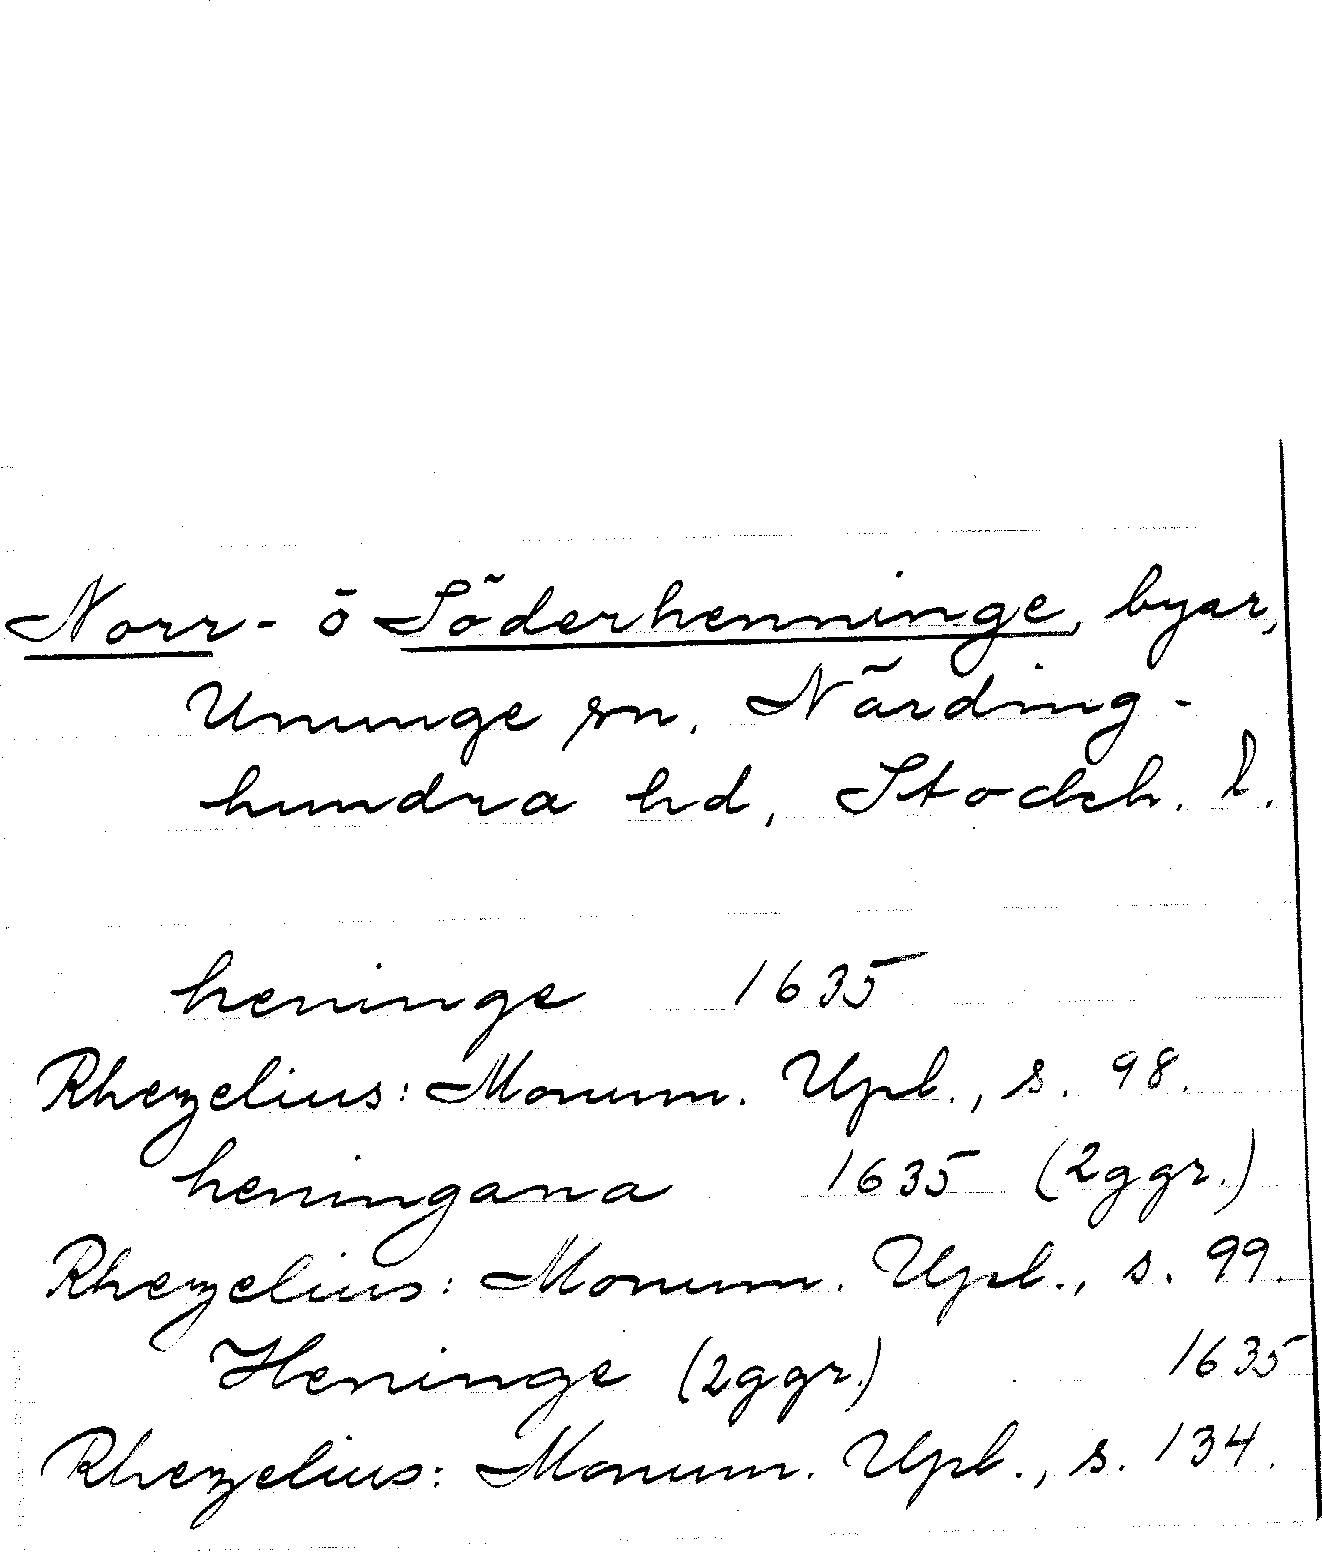 Norr- o Söderhenninge, byar,
Ununge sn, Närding-
hundra hd, Stockh. l.
heninge 1635
Rhezelius: Monum. Upl., s. 98.
heningana 1635 (2ggr.)
Rhezelius: Monum. Upl., s. 99.
Heninge (2ggr.) 1635
Rhezelius: Monum. Upl., s. 134.